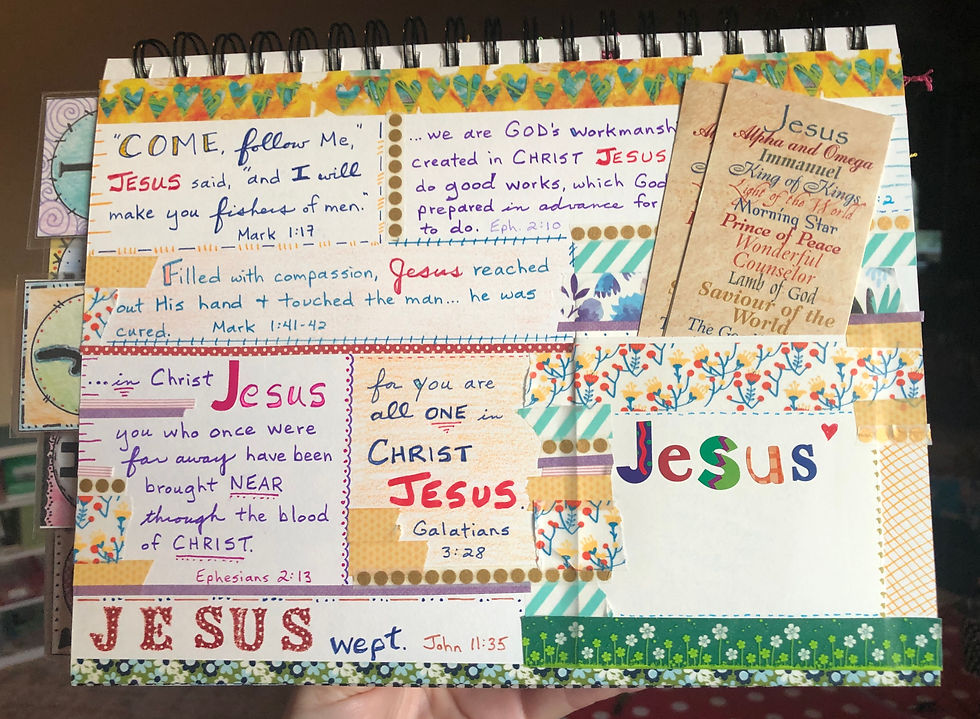 "COME, follow Me,"
JESUS said, "and I will
make you fishers of men."
Mark 1:17
...we are GOD's workmansh
created in CHRIST JESUS
do good works, which God
prepared in advance for
to do. Eph. 2:10
:2
Jesus
Alpha and Omega
Immanuel
King of Kings
Light of the World
Morning Star
Prince of Peace
Wonderful
Counselor
Lamb of God
Saviour of the
World
The Go
Filled with compassion, Jesus reached
out His hand + touched the man... he was
cured. Mark 1:41-42
...in Christ Jesus
you who once were
far away have been
brought NEAR
through the blood
of CHRIST.
Ephesians 2:13
for you are
all ONE in
CHRIST
JESUS.
Galatians
3:28
Jesus
JESUS wept. John 11:35